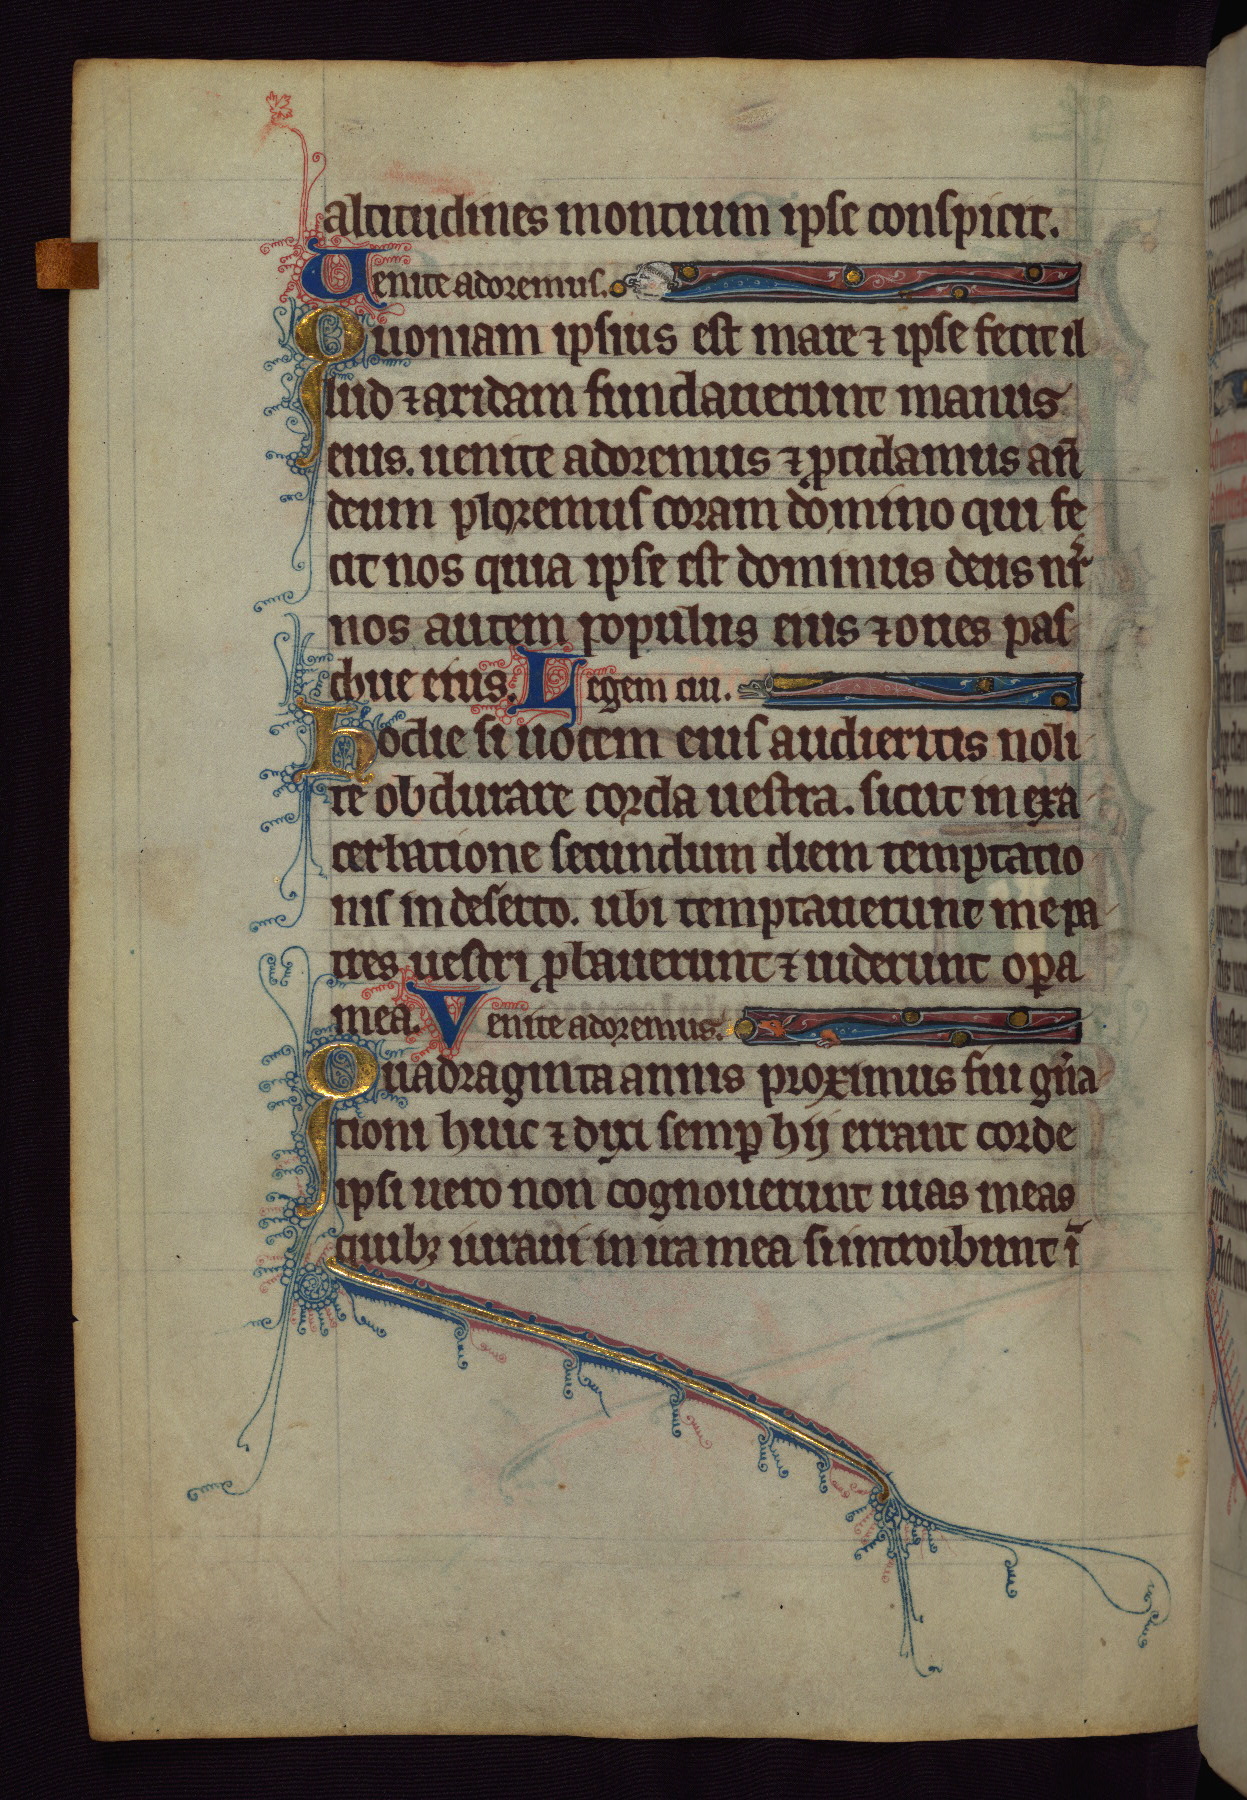 altitudines montium ipse conspicit.
Uenite adoremus.
Quoniam ipsius est mare ⁊ ipse fecit il
lud ⁊ aridam fundauerunt manus
eius. uenite adoremus ⁊ p̱cidamus an̄
deum ploremus coram domino qui fe
cit nos quia ipse est dominus deus nr̄
nos autem populus eius ⁊ oues pas
chue eius. Legem cui.
Hodie si uocem eius audieritis noli
te obdurare corda uestra. sicut in exa
cerbatione secundum diem temptatio
nis in deserto. ubi temptauerunt me pa
tres uestri ꝓbauerunt ⁊ uiderunt oꝑa
mea. Venite adoremus.
Quadraginta annis proximus fui gn̄a
tioni huic ⁊ dixi semꝑ hij errant corde
ipsi uero non cognouerunt uias meas
quibꝫ iuraui in ira mea si introibunt ī